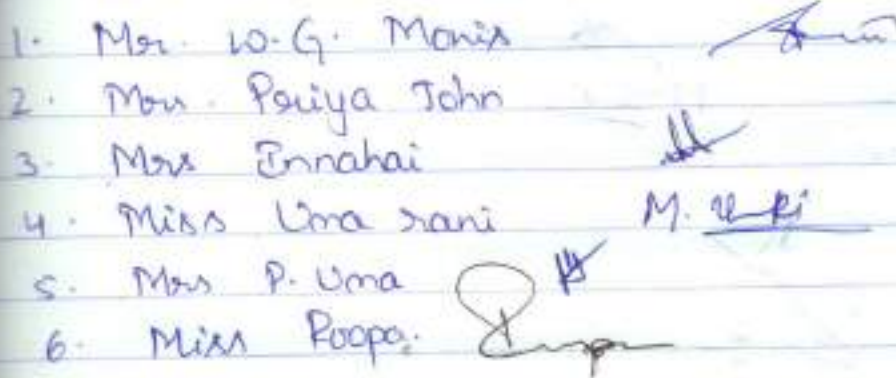 1. Mr. W.G. Monis
2. Mrs. Priya John
3. Mrs Innahai
4. Miss Uma rani M.
5. Mrs P. Uma
6. Miss Roopa.